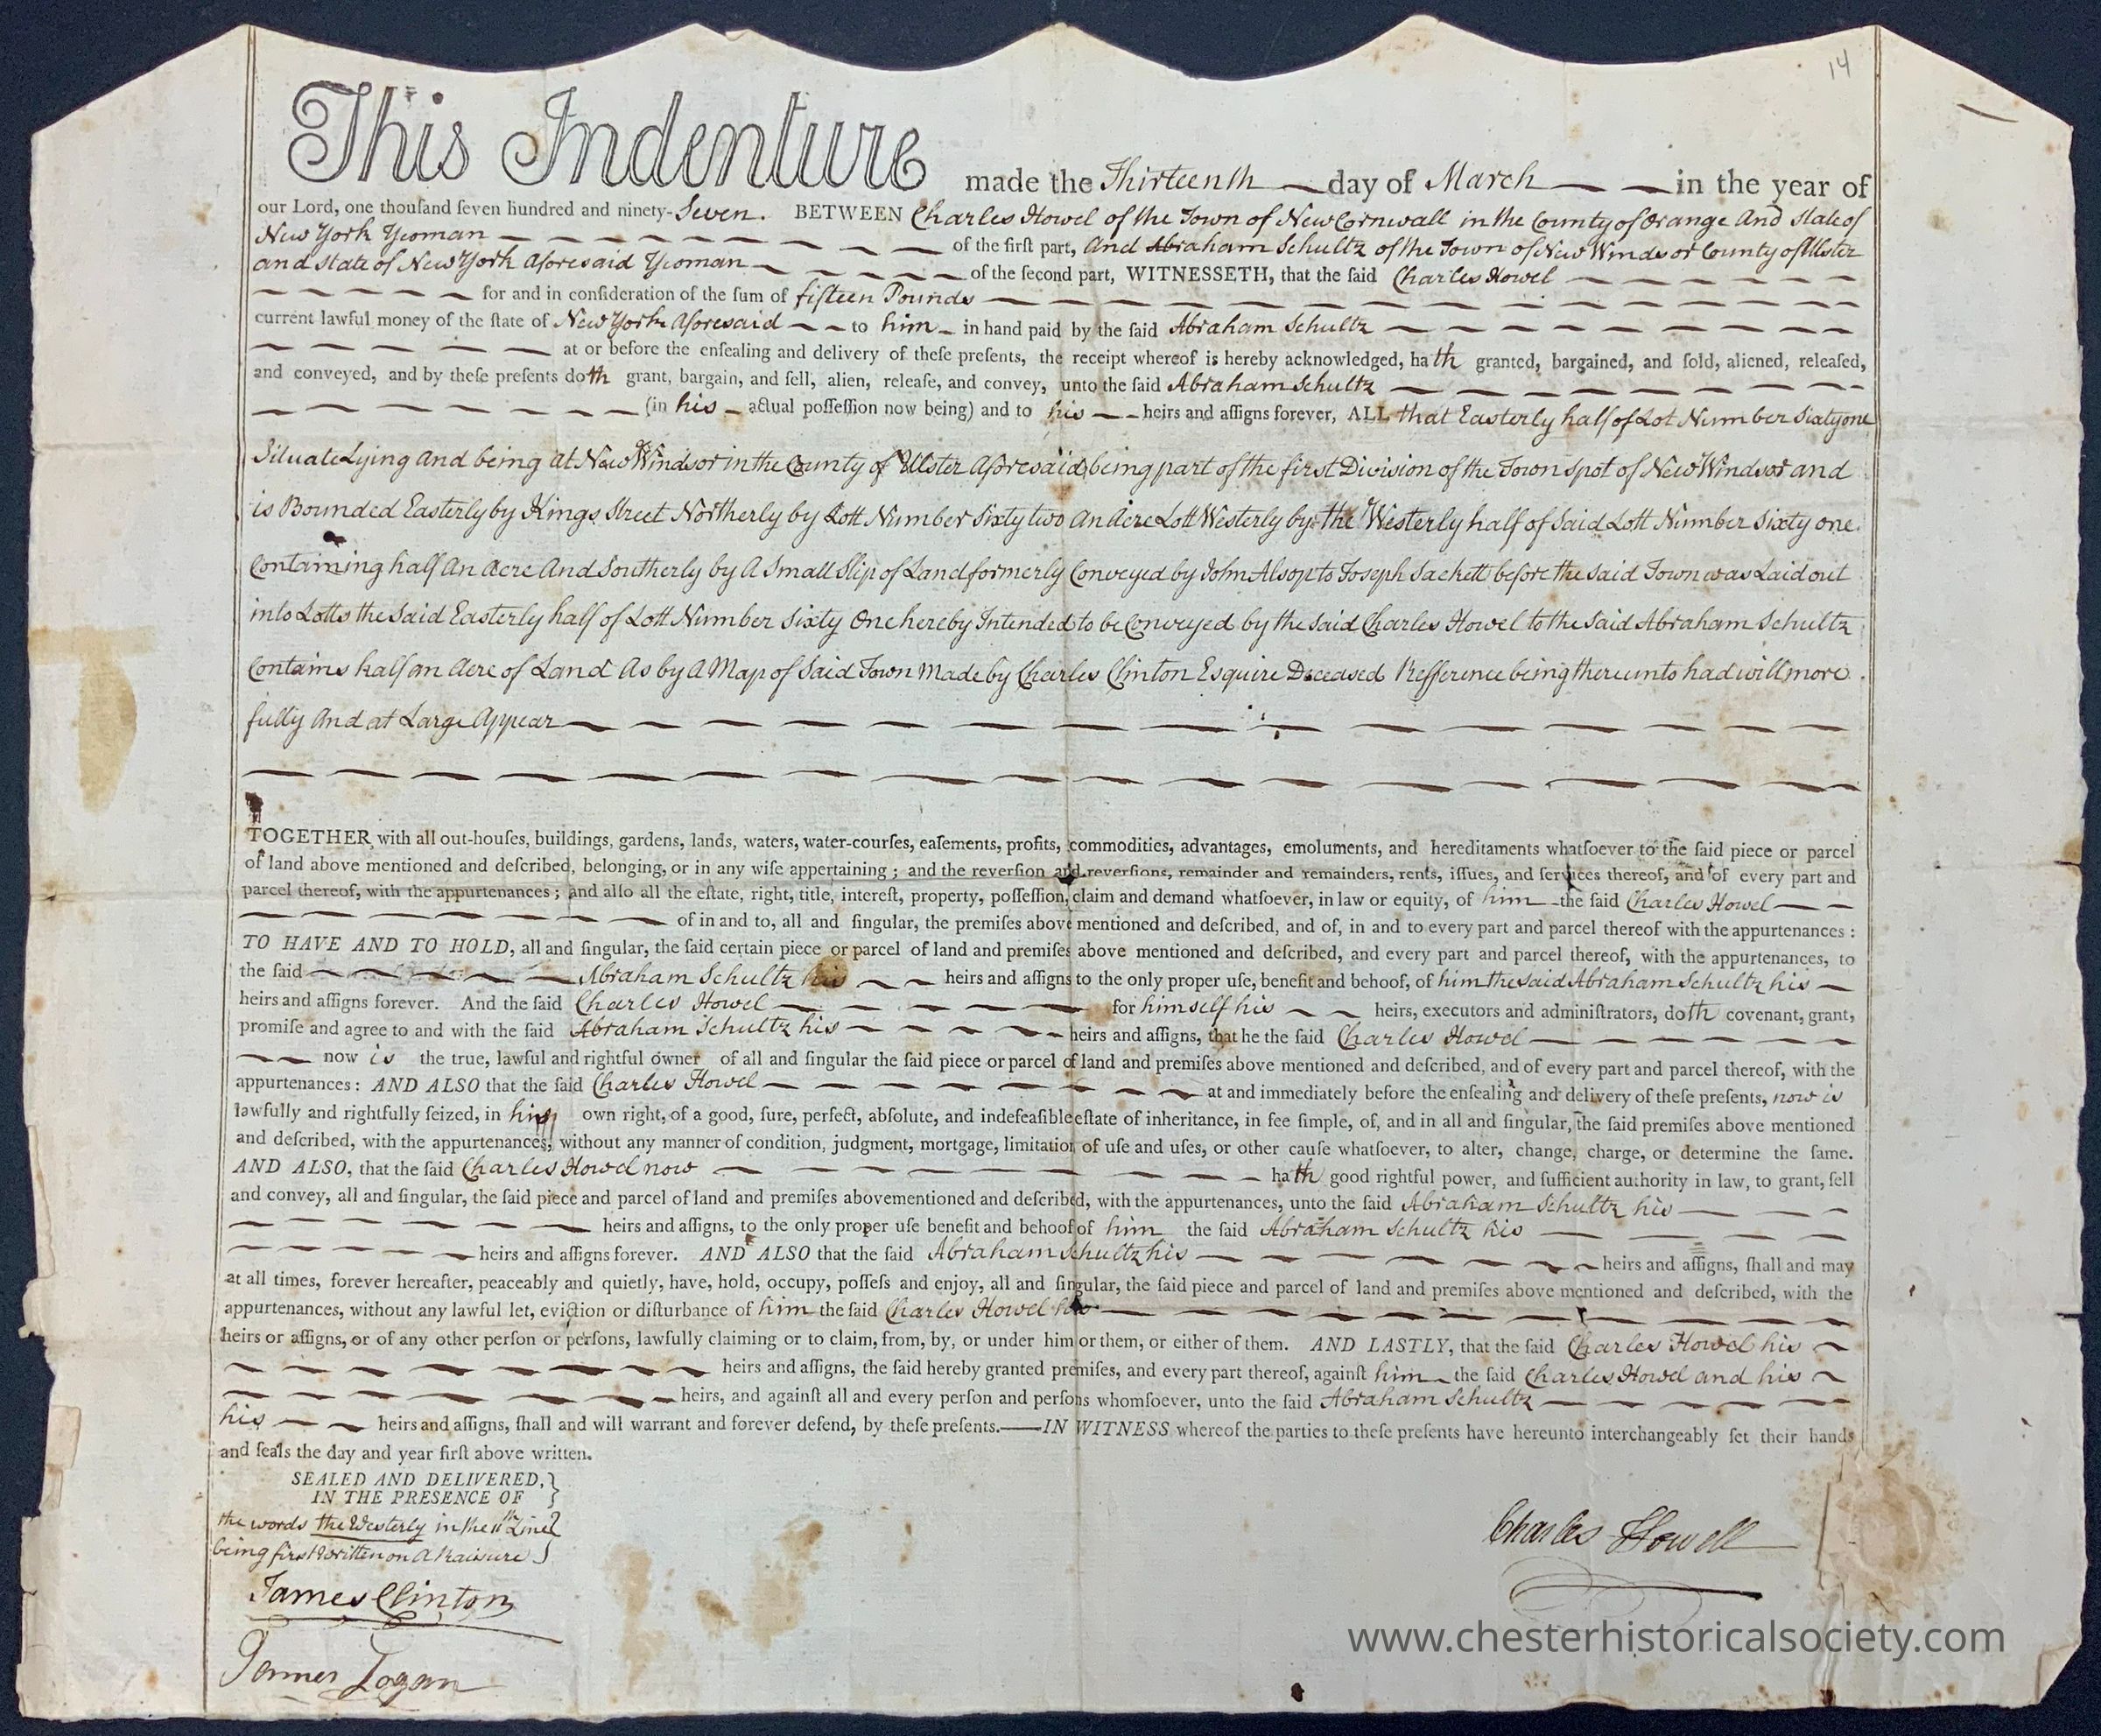 14
This Indenture made the Thirteenth day of March in the year of
our Lord, one thouſand ſeven hundred and ninety-Seven. BETWEEN Charles Howel of the Town of New Cornwall in the County of Orange And State of
New York Yeoman of the firſt part, And Abraham Schultz of the Town of New Windsor County of Ulster
and State of New York Aforesaid Yeoman of the ſecond part, WITNESSETH, that the ſaid Charles Howel
for and in conſideration of the ſum of fifteen Pounds
current lawful money of the ſtate of New York Aforesaid to him in hand paid by the ſaid Abraham Schultz
at or before the enſealing and delivery of theſe preſents, the receipt whereof is hereby acknowledged, hath granted, bargained, and ſold, aliened, releaſed,
and conveyed, and by theſe preſents doth grant, bargain, and ſell, alien, releaſe, and convey, unto the ſaid Abraham Schultz
(in his actual poſſeſſion now being) and to his heirs and aſſigns forever, ALL that Easterly half of Lot Number Sixty one
Situate Lying and being at New Windsor in the County of Ulster Aforesaid being part of the first Division of the Town spot of New Windsor and
is Bounded Easterly by Kings Street Northerly by Lott Number Sixty two An Acre Lott Westerly by the Westerly half of Said Lott Number Sixty one
Containing half An Acre And Southerly by A Small Slip of Land formerly Conveyed by John Alsop to Joseph Sackett before the Said Town was Laid out
into Lotts the Said Easterly half of Lott Number Sixty One hereby Intended to be Conveyed by the Said Charles Howel to the Said Abraham Schultz
Contains half an Acre of Land As by A Map of Said Town Made by Charles Clinton Esquire Deceased Refference being thereunto had will more
fully And at Large Appear
TOGETHER with all out-houſes, buildings, gardens, lands, waters, water-courſes, eaſements, profits, commodities, advantages, emoluments, and hereditaments whatſoever to the ſaid piece or parcel
of land above mentioned and deſcribed, belonging, or in any wiſe appertaining ; and the reverſion and reverſions, remainder and remainders, rents, iſſues, and ſervices thereof, and of every part and
parcel thereof, with the appurtenances ; and alſo all the eſtate, right, title, intereſt, property, poſſeſſion, claim and demand whatſoever, in law or equity, of him the ſaid Charles Howel
of in and to, all and ſingular, the premiſes above mentioned and deſcribed, and of, in and to every part and parcel thereof with the appurtenances :
TO HAVE AND TO HOLD, all and ſingular, the ſaid certain piece or parcel of land and premiſes above mentioned and deſcribed, and every part and parcel thereof, with the appurtenances, to
the ſaid Abraham Schultz his heirs and aſſigns to the only proper uſe, benefit and behoof, of him the said Abraham Schultz his
heirs and aſſigns forever. And the ſaid Charles Howel for himself his heirs, executors and adminiſtrators, doth covenant, grant,
promiſe and agree to and with the ſaid Abraham Schultz his heirs and aſſigns, that he the ſaid Charles Howel
now is the true, lawful and rightful owner of all and ſingular the ſaid piece or parcel of land and premiſes above mentioned and deſcribed, and of every part and parcel thereof, with the
appurtenances : AND ALSO that the ſaid Charles Howel at and immediately before the enſealing and delivery of theſe preſents, now is
lawfully and rightfully ſeized, in his own right, of a good, ſure, perfect, abſolute, and indefeaſible eſtate of inheritance, in fee ſimple, of, and in all and ſingular, the ſaid premiſes above mentioned
and deſcribed, with the appurtenances, without any manner of condition, judgment, mortgage, limitation of uſe and uſes, or other cauſe whatſoever, to alter, change, charge, or determine the ſame.
AND ALSO, that the ſaid Charles Howel now hath good rightful power, and ſufficient authority in law, to grant, ſell
and convey, all and ſingular, the ſaid piece and parcel of land and premiſes abovementioned and deſcribed, with the appurtenances, unto the ſaid Abraham Schultz his
heirs and aſſigns, to the only proper uſe benefit and behoof of him the ſaid Abraham Schultz his
heirs and aſſigns forever. AND ALSO that the ſaid Abraham Schultz his heirs and aſſigns, ſhall and may
at all times, forever hereafter, peaceably and quietly, have, hold, occupy, poſſeſs and enjoy, all and ſingular, the ſaid piece and parcel of land and premiſes above mentioned and deſcribed, with the
appurtenances, without any lawful let, eviction or diſturbance of him the ſaid Charles Howel his
heirs or aſſigns, or of any other perſon or perſons, lawfully claiming or to claim, from, by, or under him or them, or either of them. AND LASTLY, that the ſaid Charles Howel his
heirs and aſſigns, the ſaid hereby granted premiſes, and every part thereof, againſt him the ſaid Charles Howel and his
heirs, and againſt all and every perſon and perſons whomſoever, unto the ſaid Abraham Schultz
his heirs and aſſigns, ſhall and will warrant and forever defend, by theſe preſents.—IN WITNESS whereof the parties to theſe preſents have hereunto interchangeably ſet their hands
and ſeals the day and year firſt above written.
SEALED AND DELIVERED,
IN THE PRESENCE OF
the words the Westerly in the 11th Line
being first Written on A Raisure
James Clinton
James Logan
Charles Howell
www.chesterhistoricalsociety.com